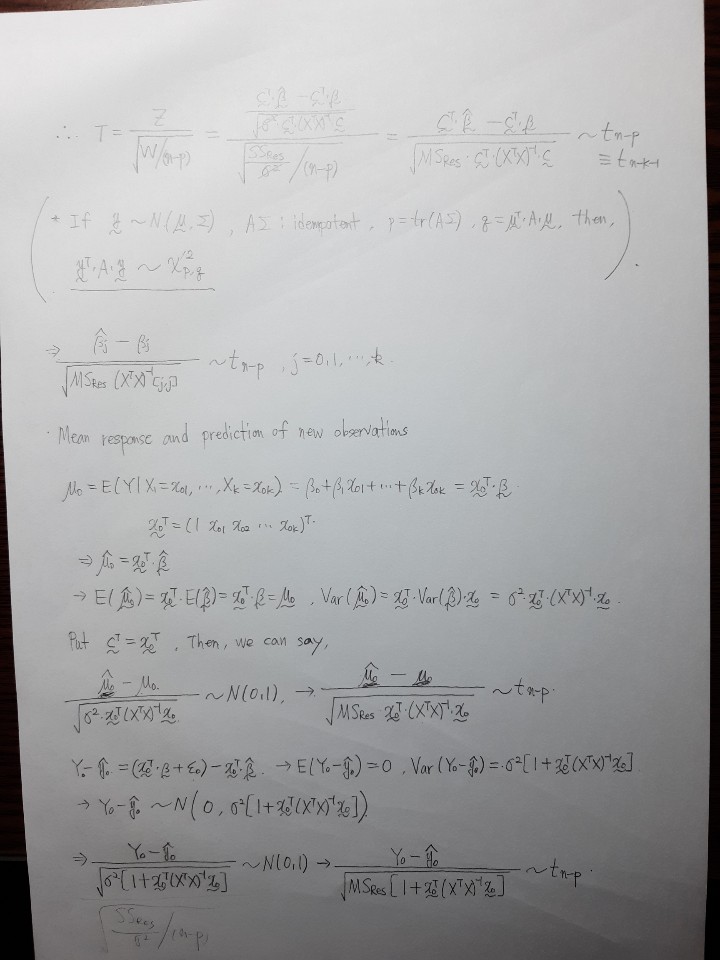 ∴ T = Z / √(W/(n-p)) = ((c̰ᵀ·β̰̂ - c̰ᵀ·β̰) / √(σ²·c̰ᵀ·(XᵀX)⁻¹·c̰)) / √((SS_Res/σ²)/(n-p)) = (c̰ᵀ·β̰̂ - c̰ᵀ·β̰) / √(MS_Res·c̰ᵀ·(XᵀX)⁻¹·c̰) ~ t_{n-p}
≡ t_{n-k-1}
( * If y̰ ~ N(μ̰, Σ), AΣ : idempotent, p = tr(AΣ), q = μ̰ᵀ·A·μ̰, then,
y̰ᵀ·A·y̰ ~ χ'²_{p,q} ).
⇒ (β̂j - βj) / √(MS_Res (XᵀX)⁻¹[j,j]) ~ t_{n-p}, j = 0, 1, ..., k.
· Mean response and prediction of new observations
μ₀ = E(Y | X₁ = x₀₁, ..., X_k = x₀k) = β₀ + β₁x₀₁ + ... + β_k x₀k = x̰₀ᵀ·β̰.
x̰₀ᵀ = (1 x₀₁ x₀₂ ... x₀k)ᵀ.
⇒ μ̂₀ = x̰₀ᵀ·β̰̂
→ E(μ̂₀) = x̰₀ᵀ·E(β̰̂) = x̰₀ᵀ·β̰ = μ₀, Var(μ̂₀) = x̰₀ᵀ·Var(β̰̂)·x̰₀ = σ²·x̰₀ᵀ·(XᵀX)⁻¹·x̰₀.
Put c̰ᵀ = x̰₀ᵀ, Then, we can say,
(μ̂₀ - μ₀) / √(σ²·x̰₀ᵀ(XᵀX)⁻¹x̰₀) ~ N(0,1), → (μ̂₀ - μ₀) / √(MS_Res·x̰₀ᵀ·(XᵀX)⁻¹·x̰₀) ~ t_{n-p}.
Y₀ - ŷ₀ = (x̰₀ᵀ·β̰ + ε₀) - x̰₀ᵀ·β̰̂. → E(Y₀ - ŷ₀) = 0, Var(Y₀ - ŷ₀) = σ²[1 + x̰₀ᵀ(XᵀX)⁻¹x̰₀]
→ Y₀ - ŷ₀ ~ N(0, σ²[1 + x̰₀ᵀ(XᵀX)⁻¹x̰₀])
⇒ (Y₀ - ŷ₀) / √(σ²[1 + x̰₀ᵀ(XᵀX)⁻¹x̰₀]) ~ N(0,1) → (Y₀ - ŷ₀) / √(MS_Res[1 + x̰₀ᵀ(XᵀX)⁻¹x̰₀]) ~ t_{n-p}.
√((SS_Res/σ²)/(n-p))